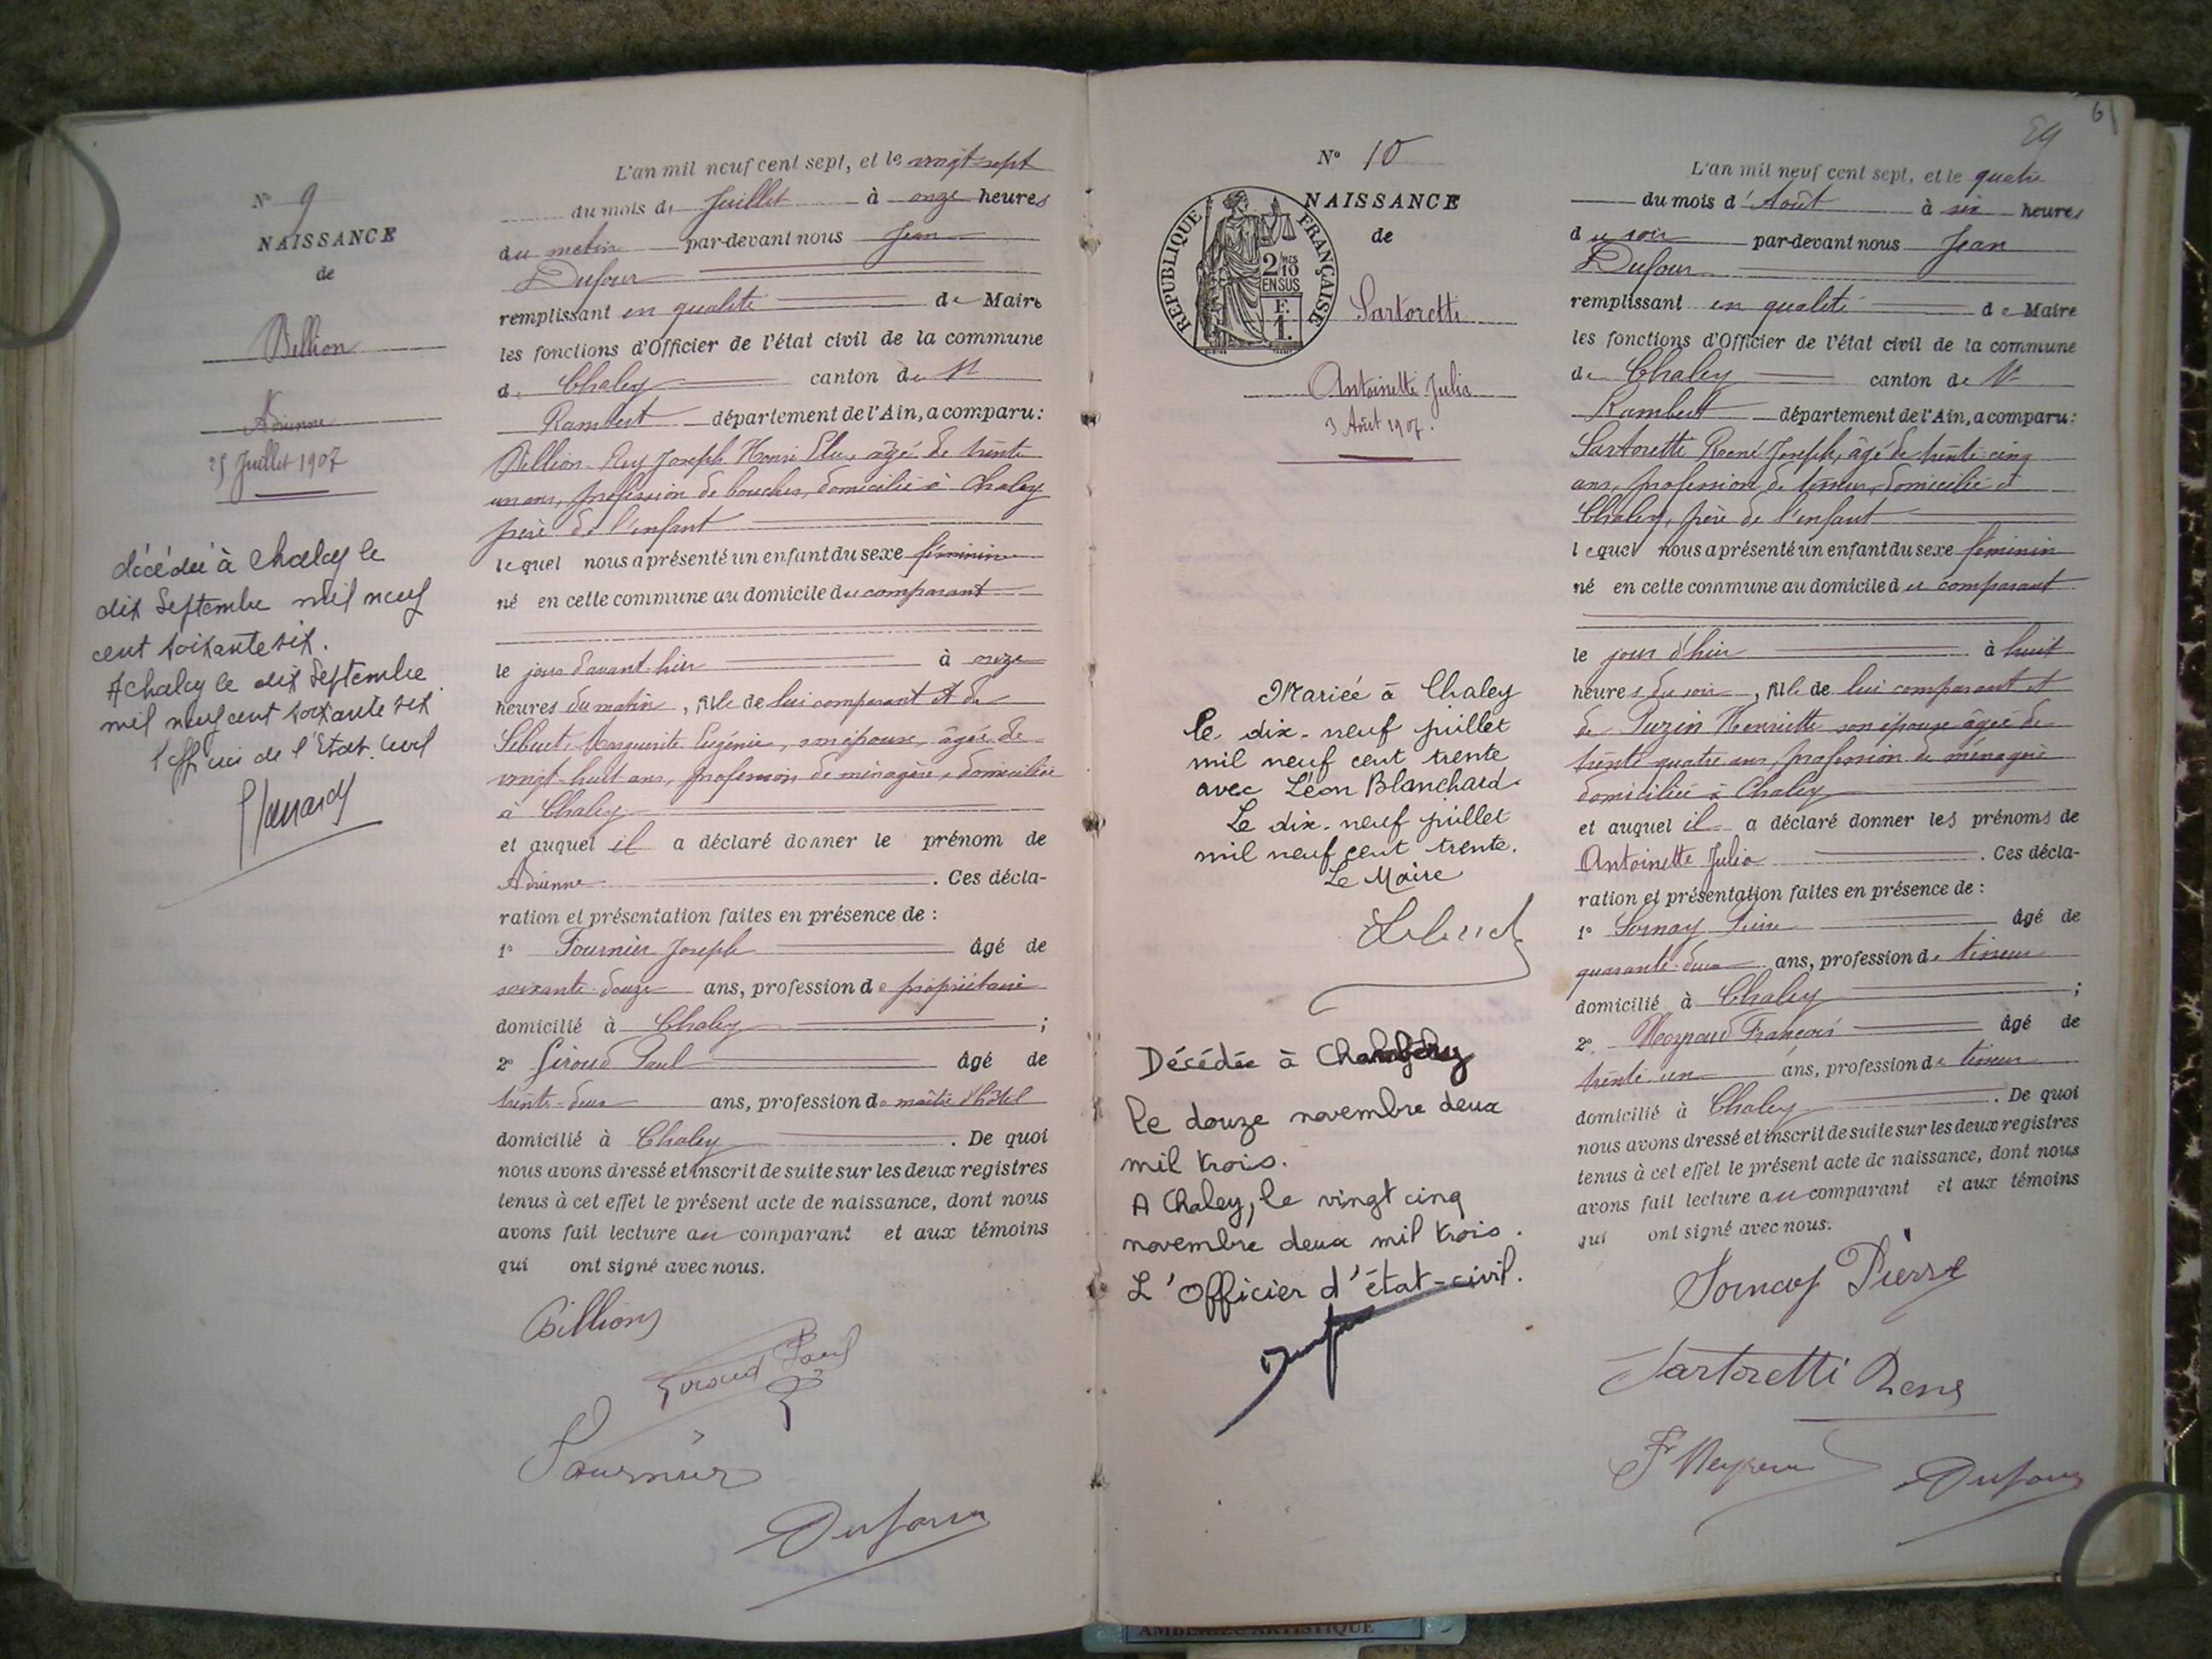 N° 9
NAISSANCE
de
Billion
Adrienne
25 Juillet 1907
décédée à Chaley le
dix Septembre mil neuf
cent soixante six.
A Chaley le dix Septembre
mil neuf cent soixante six
l'officier de l'Etat Civil
L'an mil neuf cent sept, et le vingt-sept
du mois de Juillet à onze heures
du matin par-devant nous Jean
Dufour
remplissant en qualité de Maire
les fonctions d'Officier de l'état civil de la commune
de Chaley canton de St
Rambert département de l'Ain, a comparu:
Billion Rey Joseph Henri Elie, âgé de trente
un ans, profession de boucher, domicilié à Chaley
père de l'enfant
lequel nous a présenté un enfant du sexe féminin
né en cette commune au domicile du comparant
le jour d'avant-hier à onze
heures du matin, fille de lui comparant et de
Marguerite Eugénie, son épouse, âgée de
vingt-huit ans, profession de ménagère, domiciliée
à Chaley
et auquel il a déclaré donner le prénom de
Adrienne. Ces décla-
ration et présentation faites en présence de :
1° Fournier Joseph âgé de
soixante-douze ans, profession de propriétaire
domicilié à Chaley ;
2° Giroud Paul âgé de
trente-deux ans, profession de maître d'hôtel
domicilié à Chaley. De quoi
nous avons dressé et inscrit de suite sur les deux registres
tenus à cet effet le présent acte de naissance, dont nous
avons fait lecture au comparant et aux témoins
qui ont signé avec nous.
Billion
Giroud Paul
Fournier
Dufour
61
59
N° 10
NAISSANCE
de
REPUBLIQUE FRANÇAISE
2/10 MES
EN SUS
F.
1.
Sartoretti
Antoinette Julia
3 Août 1907.
Mariée à Chaley
le dix-neuf juillet
mil neuf cent trente
avec Léon Blanchard.
Le dix-neuf juillet
mil neuf cent trente.
Le Maire
Décédée à
le douze novembre deux
mil trois.
A Chaley, le vingt cinq
novembre deux mil trois.
L'Officier d'état-civil.
L'an mil neuf cent sept, et le quatre
du mois d'Août à six heures
du soir par-devant nous Jean
Dufour
remplissant en qualité de Maire
les fonctions d'Officier de l'état civil de la commune
de Chaley canton de St
Rambert département de l'Ain, a comparu:
Sartoretti René Joseph, âgé de trente-cinq
ans, profession de tisseur, domicilié à
Chaley, père de l'enfant
lequel nous a présenté un enfant du sexe féminin
né en cette commune au domicile du comparant
le jour d'hier à huit
heures du soir, fille de lui comparant et
de Puzin Henriette son épouse âgée de
trente quatre ans, profession de ménagère
domiciliée à Chaley
et auquel il a déclaré donner les prénoms de
Antoinette Julia. Ces décla-
ration et présentation faites en présence de :
1° Sornay Pierre âgé de
quarante-deux ans, profession de tisseur
domicilié à Chaley ;
2° François âgé de
trente-un ans, profession de tisseur
domicilié à Chaley. De quoi
nous avons dressé et inscrit de suite sur les deux registres
tenus à cet effet le présent acte de naissance, dont nous
avons fait lecture au comparant et aux témoins
qui ont signé avec nous.
Sornay Pierre
Sartoretti René
Dufour